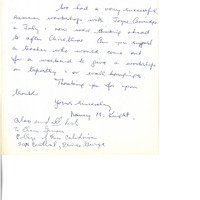 We had a very successful
summer workshop with Joyce
in July & now are thinking ahead
to after Christmas. Can you suggest
a leader who would come out
for a weekend to give a workshop
on tapestry, or wall hangings.
Thanking you for your
trouble
Yours Sincerely
Nancy M. Knight.
To
College of New Caledonia
Central, Prince George